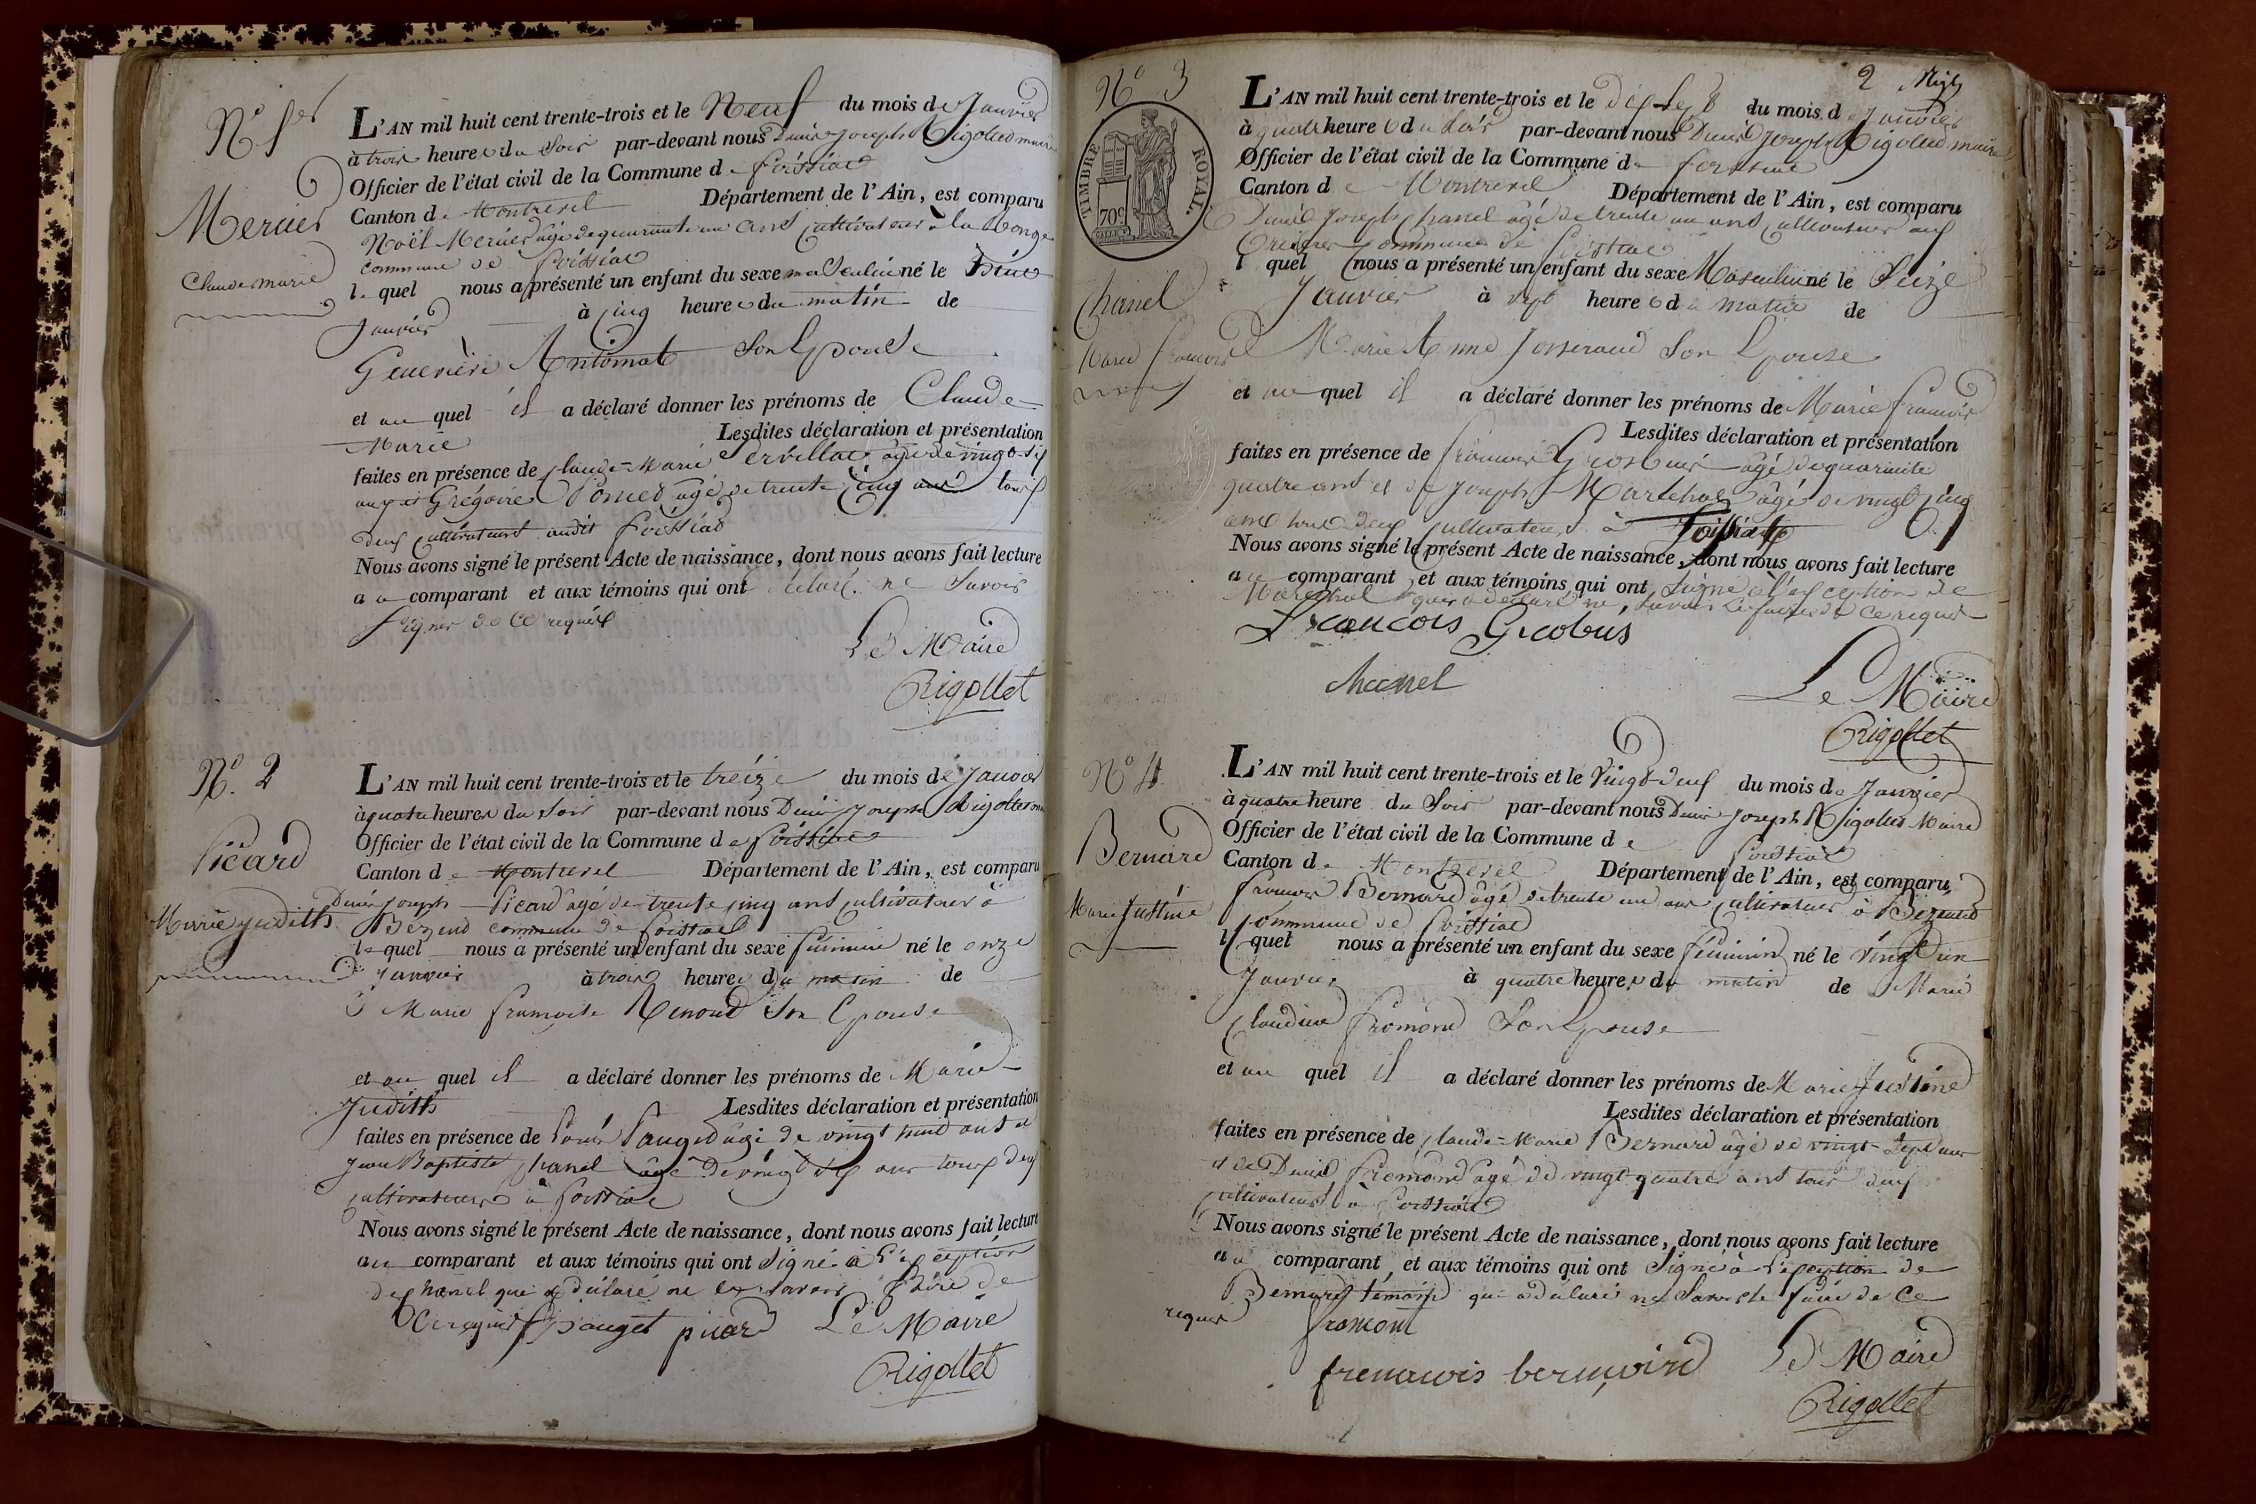 N.º 1er
Mercier
Claude marie
L'AN mil huit cent trente-trois et le Neuf du mois de Janvier
à trois heures du Soir par-devant nous Denis Joseph Rigollet maire
Officier de l'état civil de la Commune de foissiat
Canton de Montrevel Département de l'Ain, est comparu
Noël Mercier âgé de quarante un ans cultivateur à la
commune de foissiat
lequel nous a présenté un enfant du sexe masculin né le
Janvier à cinq heures du matin de
Son Epouse
et au quel il a déclaré donner les prénoms de Claude
Marie Lesdites déclaration et présentation
faites en présence de Claude-Marie âgé de vingt-six
ans et Grégoire âgé de trente cinq ans tous
deux cultivateurs audit foissiat
Nous avons signé le présent Acte de naissance, dont nous avons fait lecture
au comparant et aux témoins qui ont déclaré ne Savoir
Signer de ce requis
Le Maire
Rigollet
N.º 2
Picard
Marie Judith
L'AN mil huit cent trente-trois et le treize du mois de Janvier
à quatre heures du Soir par-devant nous Denis Joseph Rigollet maire
Officier de l'état civil de la Commune de foissiat
Canton de Montrevel Département de l'Ain, est comparu
Denis Joseph Picard âgé de trente cinq ans cultivateur à
Bezend commune de foissiat
lequel nous a présenté un enfant du sexe féminin né le onze
Janvier à trois heures du matin de
Marie francoise Renoud Son Epouse
et au quel il a déclaré donner les prénoms de Marie
Judith Lesdites déclaration et présentation
faites en présence de Pauget âgé de vingt neuf ans et
Jean Baptiste chanel âgé de vingt six ans tous deux
cultivateurs à foissiat
Nous avons signé le présent Acte de naissance, dont nous avons fait lecture
au comparant et aux témoins qui ont Signé à l'exception
de chanel qui a déclaré ne le savoir faire de
ce requis pauget picard Le Maire
Rigollet
2
Nº 3
TIMBRE ROYAL.
70c
Chanel
Marie francois
L'AN mil huit cent trente-trois et le dix sept du mois de Janvier
à quatre heures du Soir par-devant nous Denis Joseph Rigollet maire
Officier de l'état civil de la Commune de foissiat
Canton de Montrevel Département de l'Ain, est comparu
Denis Joseph Chanel âgé de trente un ans cultivateur aux
commune de foissiat
lequel nous a présenté un enfant du sexe Masculin né le Seize
Janvier à sept heures du matin de
Marie Anne Josserand Son Epouse
et au quel il a déclaré donner les prénoms de Marie francois
Lesdites déclaration et présentation
faites en présence de francois Grosbuis âgé de quarante
quatre ans et de Joseph Marechal âgé de vingt cinq
ans tous deux cultivateurs à foissiat
Nous avons signé le présent Acte de naissance, dont nous avons fait lecture
au comparant et aux témoins qui ont signé à l'exception de
Maréchal qui a déclaré ne savoir le faire de ce requis
Francois Grobuis
chanel
Le Maire
Rigollet
Nº 4
Bernard
Marie Justine
L'AN mil huit cent trente-trois et le vingt-deux du mois de Janvier
à quatre heure du Soir par-devant nous Denis Joseph Rigollet Maire
Officier de l'état civil de la Commune de foissiat
Canton de Montrevel Département de l'Ain, est comparu
francois Bernard âgé de trente un ans cultivateur à Bezend
commune de foissiat
lequel nous a présenté un enfant du sexe féminin né le vingt un
Janvier à quatre heures du matin de Marie
Claudine fromond Son Epouse
et au quel il a déclaré donner les prénoms de Marie Justine
Lesdites déclaration et présentation
faites en présence de Claude-Marie Bernard âgé de vingt-sept ans
et de Denis fromond âgé de vingt quatre ans tous deux
cultivateurs à foissiat
Nous avons signé le présent Acte de naissance, dont nous avons fait lecture
au comparant et aux témoins qui ont Signé à l'exception de
Bernard témoin qui a déclaré ne Savoir le faire de ce
requis fromont
Le Maire
francois bernard
Rigollet